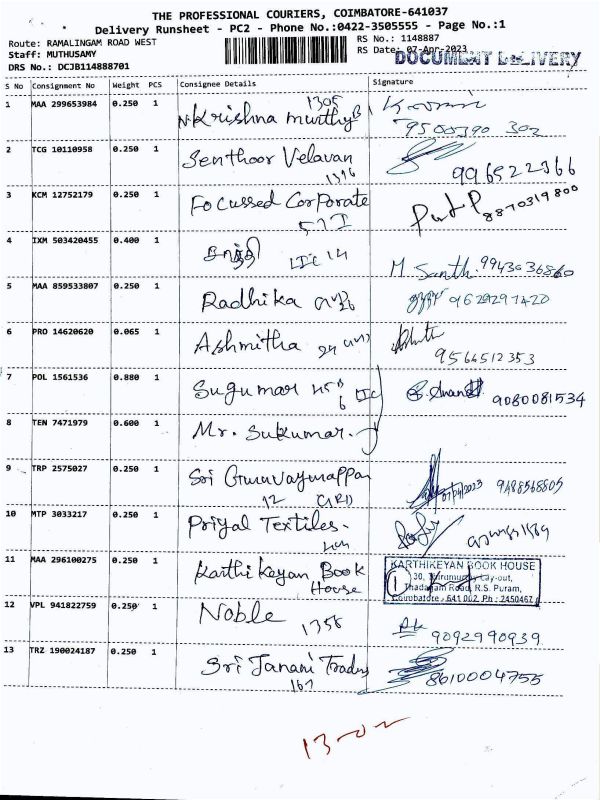 THE PROFESSIONAL COURIERS, COIMBATORE-641037
Delivery Runsheet - PC2 - Phone No.:0422-3505555 - Page No.:1
Route: RAMALINGAM ROAD WEST
RS No.: 1148887
Staff: MUTHUSAMY
RS Date: 07-Apr-2023
DOCUMENT DELIVERY
DRS No.: DCJB114888701
S No Consignment No Weight PCS Consignee Details Signature
1 MAA 299653984 0.250 1 N Krishna murthy 1305
9500390 302
2 TCG 10110958 0.250 1 Senthoor Velavan
1316
996522366
3 KCM 12752179 0.250 1 Focussed Corporate
8870319800
4 IXM 503420455 0.400 1 சாந்தி LIC
M. Santhi 9943036860
5 MAA 859533807 0.250 1 Radhika
9629297420
6 PRO 14620620 0.065 1 Ashmitha
9566512353
7 POL 1561536 0.880 1 Sugumar LIC
9080081534
8 TEN 7471979 0.600 1 Mr. Sukumar.
9 TRP 2575027 0.250 1 Sri Guruvayurappan
12
07/04/2023 9488568805
10 MTP 3033217 0.250 1 Priyal Textiles.
11 MAA 296100275 0.250 1 Karthikeyan Book
House
KARTHIKEYAN BOOK HOUSE
30, Thirumurthy Lay-out,
Thadagam Road, R.S. Puram,
Coimbatore - 641 002. Ph : 2450467
12 VPL 941822759 0.250 1 Noble
1358
9092990939
13 TRZ 190024187 0.250 1 Sri Janani Traders
167
8610004755
13-02